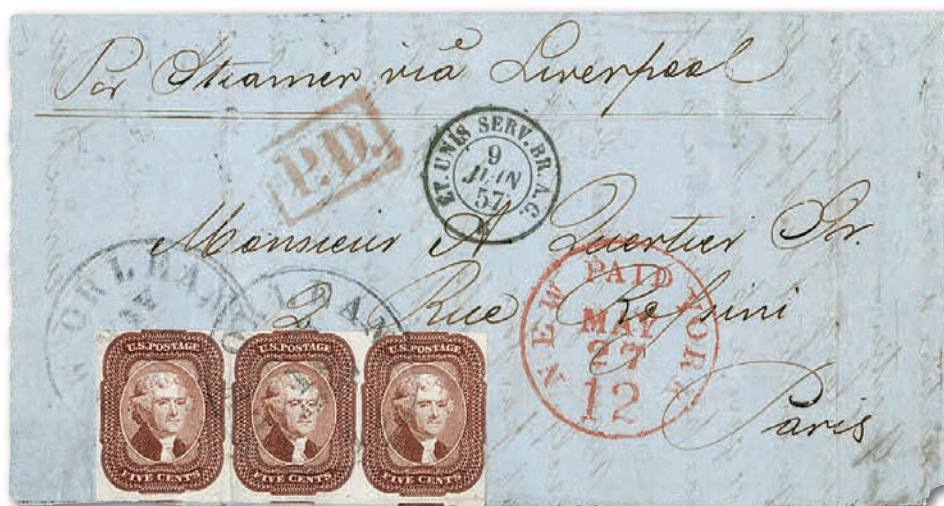 Per Steamer viâ Liverpool
P.D.
ET. UNIS SERV. BR. A.C.
9
JUIN
57
Monsieur A Quertier Sr.
2 Rue Rossini
Paris
NEW YORK
PAID
MAY
27
12
ORLEAN
U.S. POSTAGE
FIVE CENTS
U.S. POSTAGE
FIVE CENTS
U.S. POSTAGE
FIVE CENTS